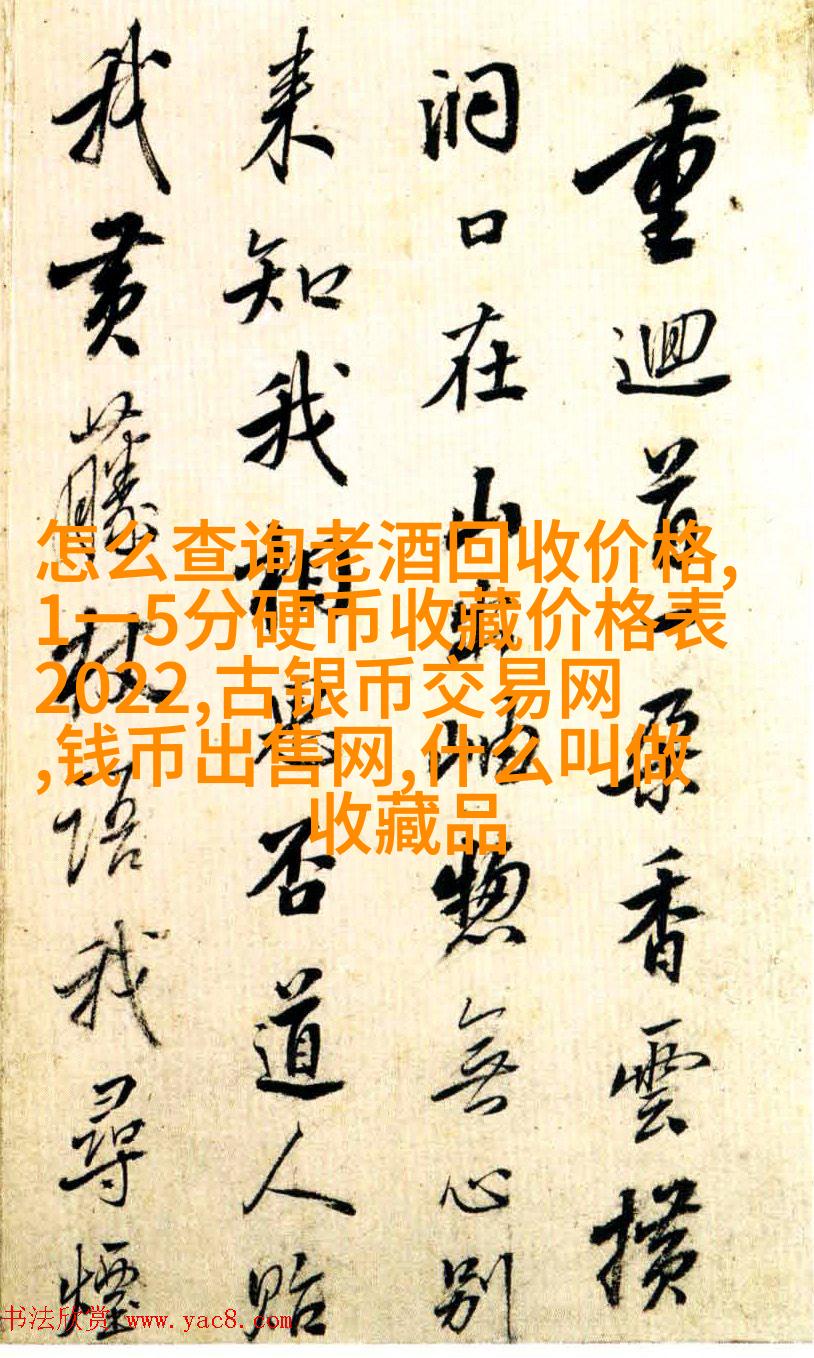 重迴首一朵香雲横
洞口在山出岫惣無心别
来知我相思否道人貽
我黄藤杖語我尋煙
怎么查询老酒回收价格,
1一5分硬币收藏价格表
2022,古银币交易网
,钱币出售网,什么叫做
收藏品
书法欣赏 www.yac8.com